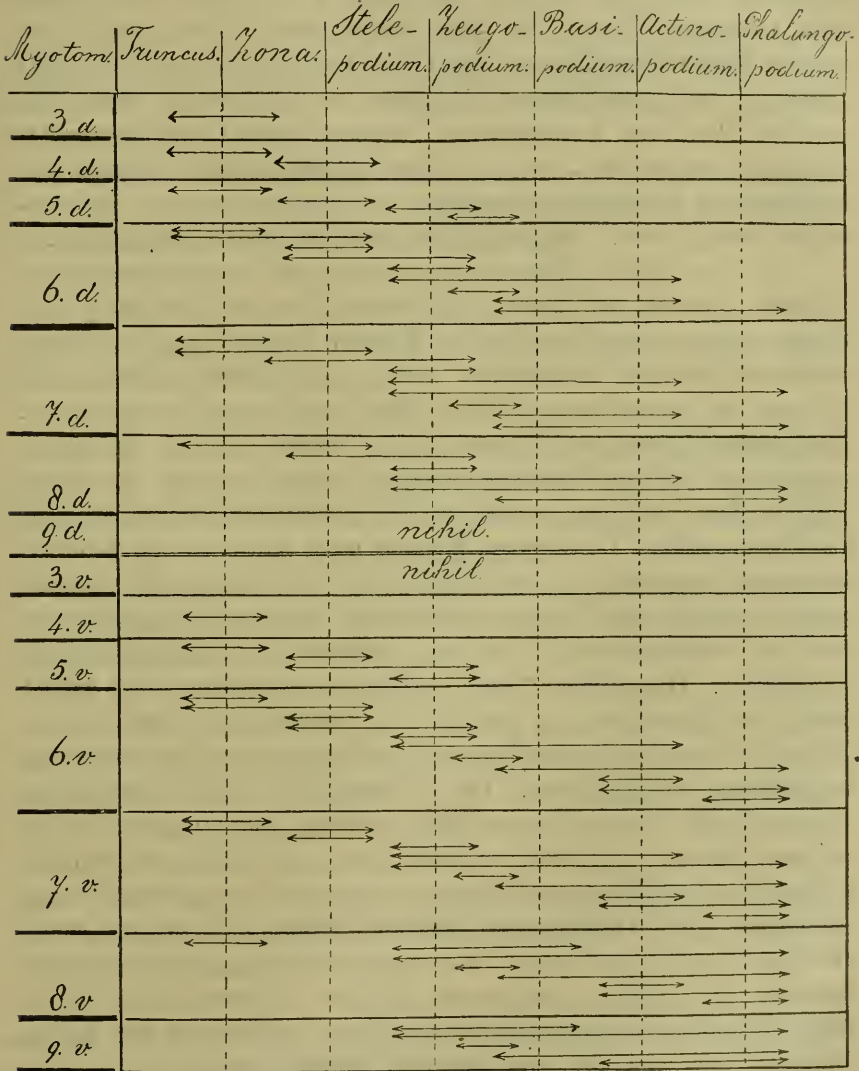 Myotom. Truncus. Zona. Stele-podium. Zeugo-podium. Basi-podium. Actino-podium. Phalango-podium.
3 d.
4. d.
5. d.
6. d.
7. d.
8. d.
9. d. nihil.
3. v. nihil.
4. v.
5. v.
6. v.
7. v.
8. v
9. v.